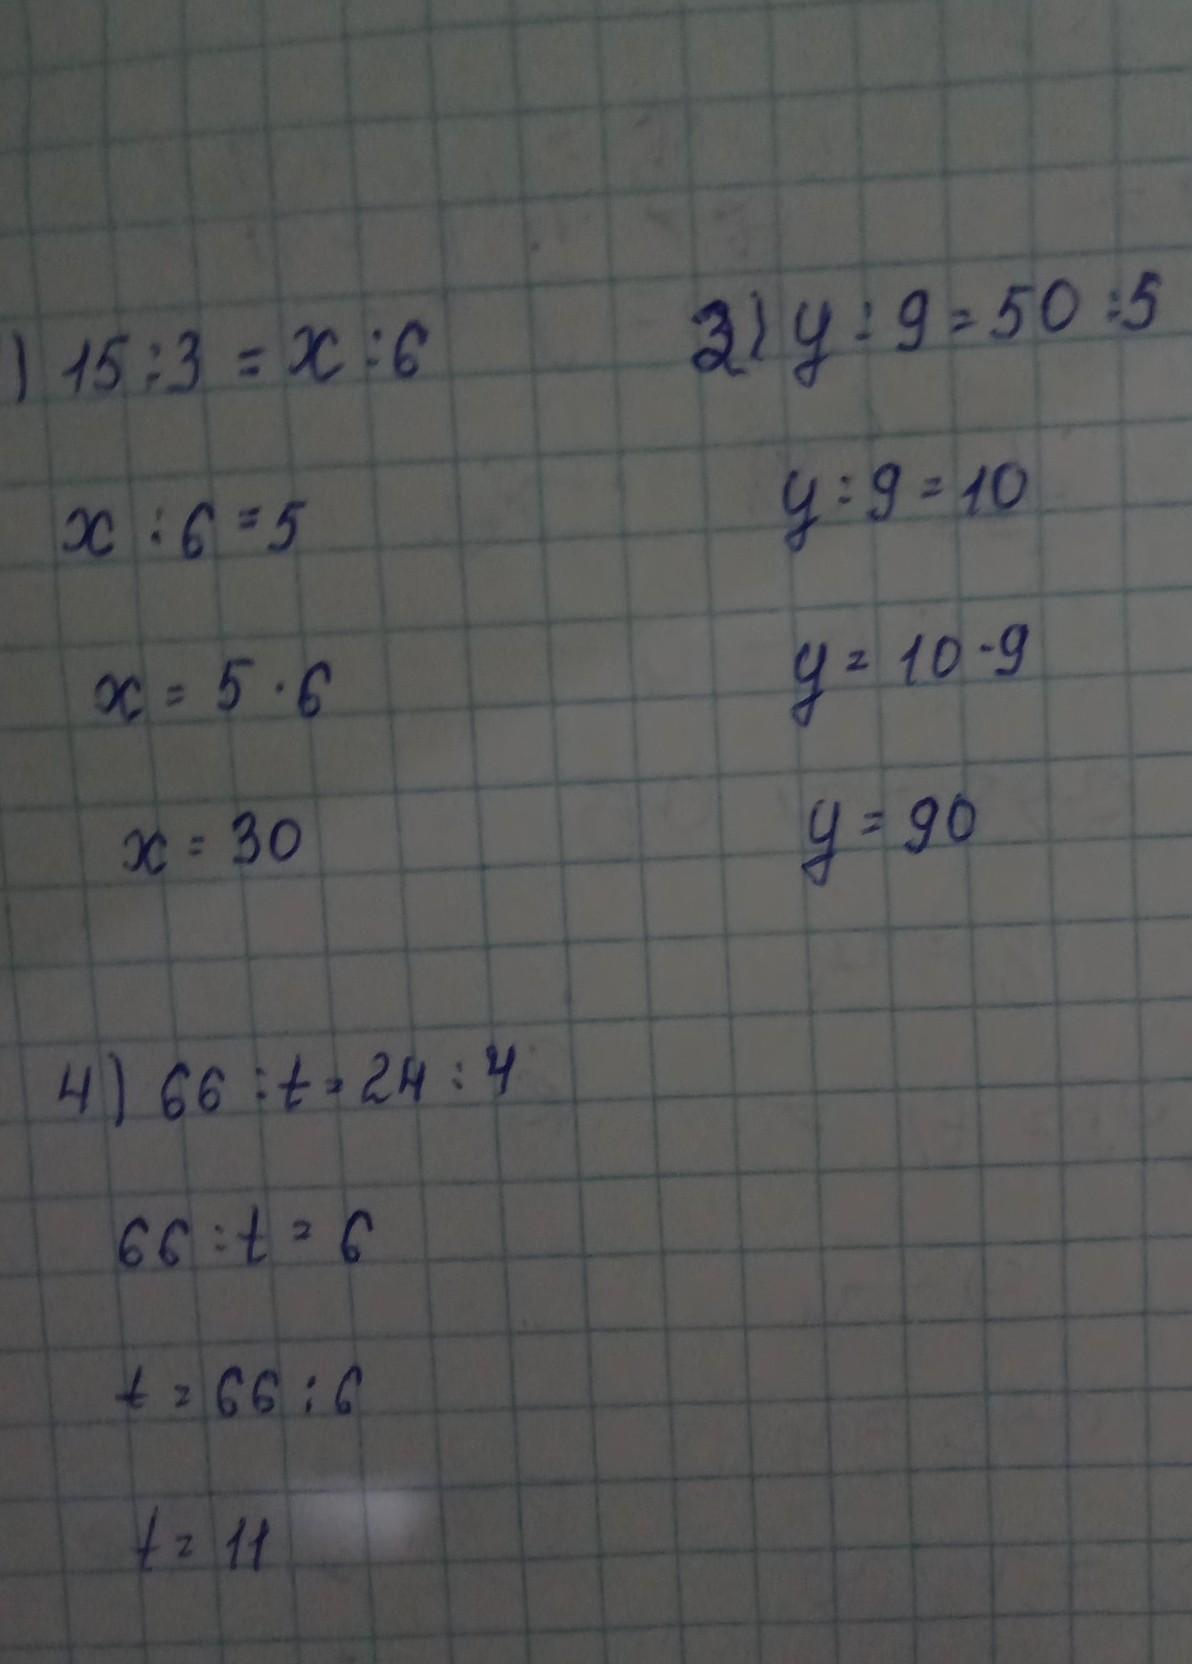 ) 15:3 = x:6
x:6=5
x = 5·6
x = 30
3) y:9=50:5
y:9=10
y = 10·9
y = 90
4) 66:t=24:4
66:t=6
t = 66:6
t = 11